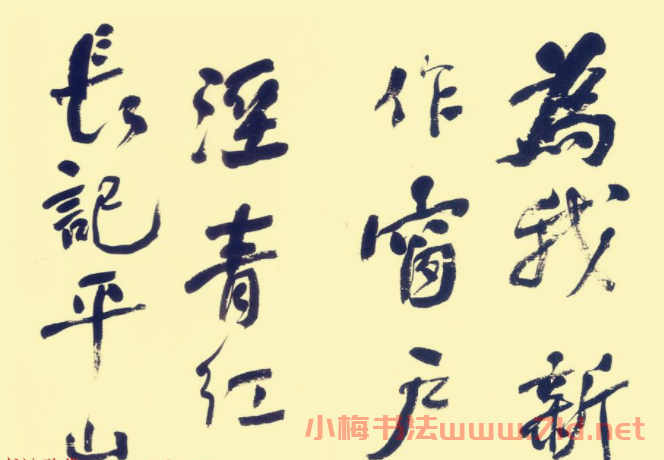 為我新
作窗户
溼青紅
長記平山
小梅书法www.7ld.net